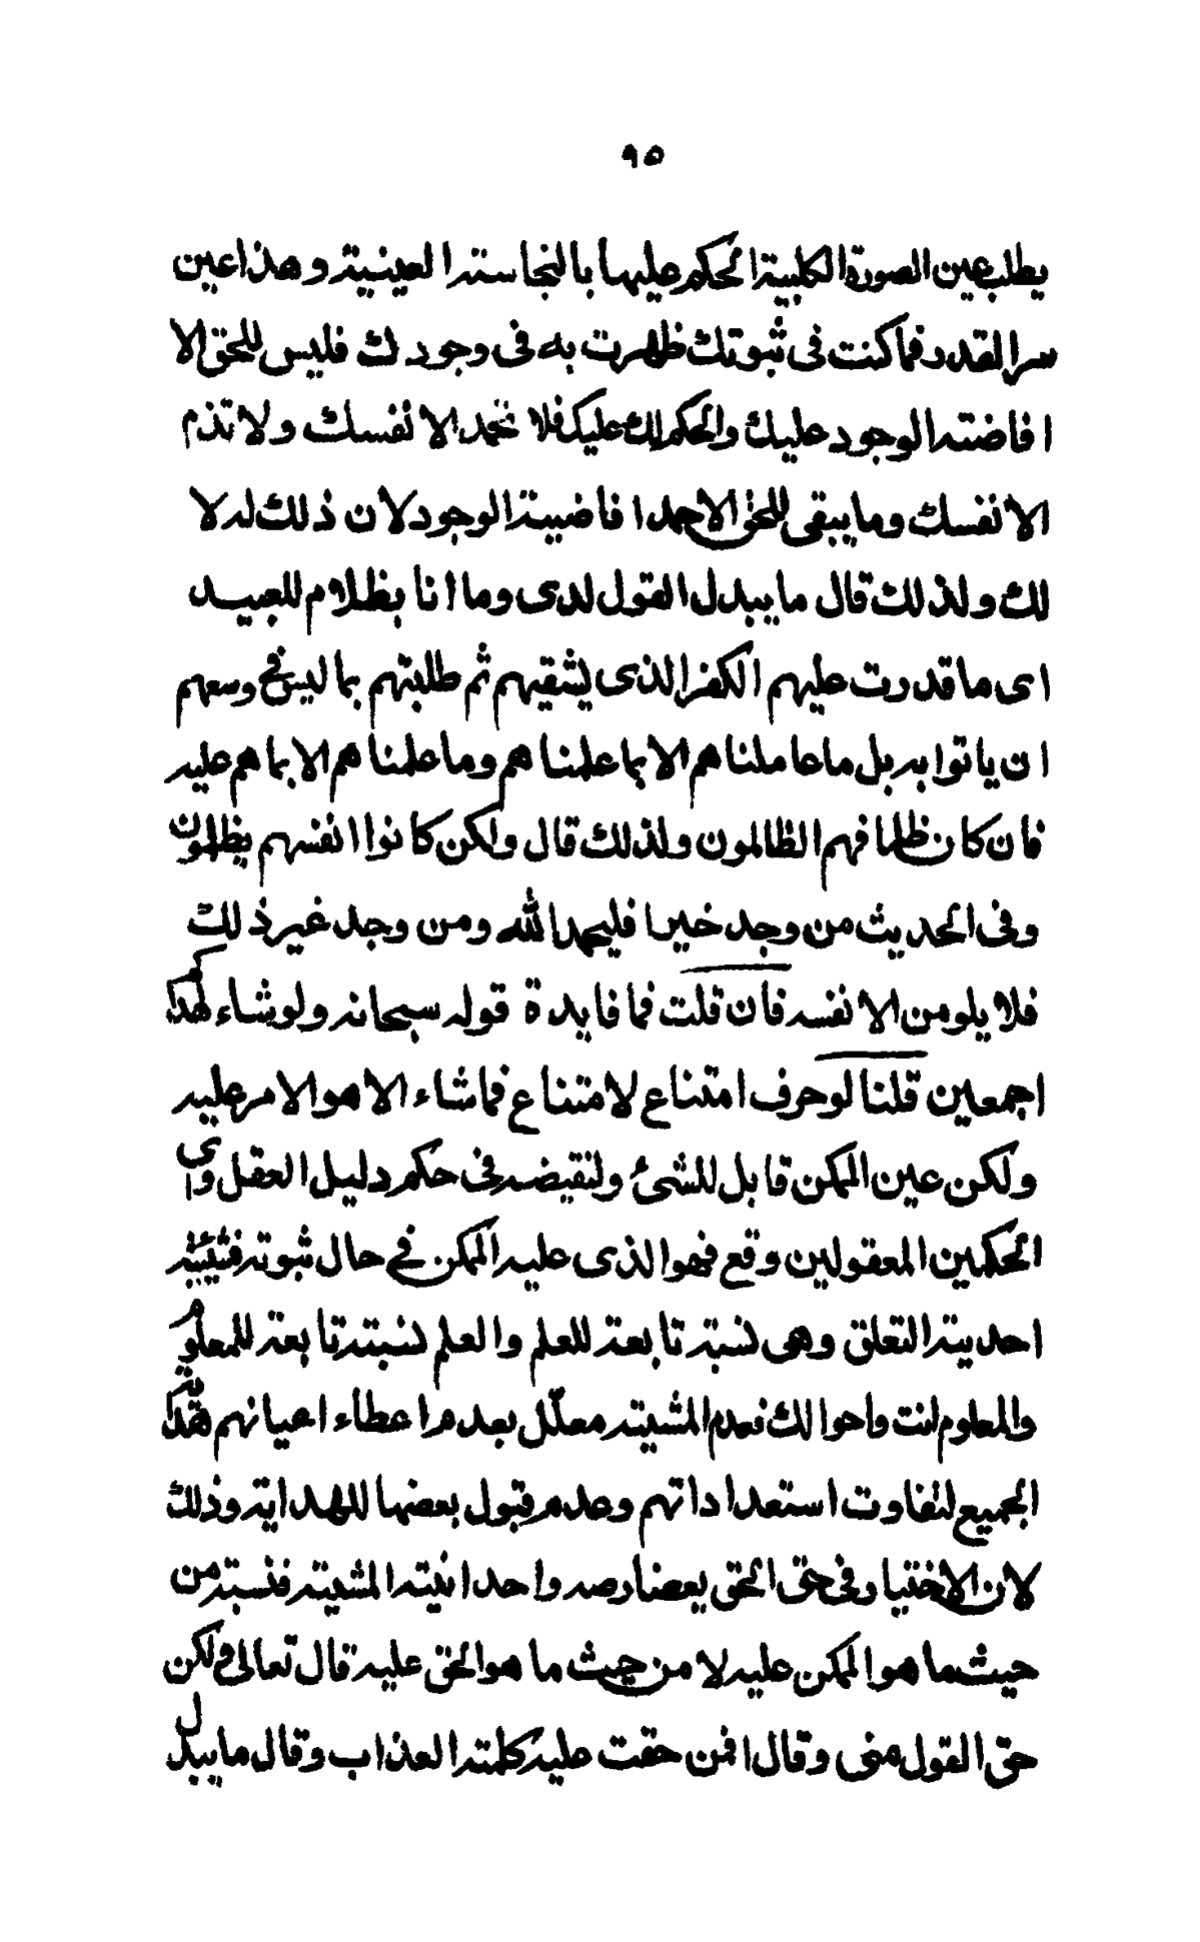 ٩٥
يطلب عين الصورة الكلبية الحكم عليها بالنجاسة العينية وهذا عين
سر القدر فما كنت فى ثبوتك ظهرت به فى وجودك فليس للحق الا
افاضته الوجود عليك والحكم لك عليك فلا تحمد الا نفسك ولا تذم
الا نفسك وما يبقى للحق الا حمد افاضية الوجود لان ذلك له لا
لك ولذلك قال ما يبدل القول لدى وما انا بظلام للعبيد
اى ما قدرت عليهم الكفر الذى يشقيهم ثم طلبتهم بما ليس فى وسعهم
ان ياتوا به بل ما عاملناهم الا بما علمناهم وما علمناهم الا بما هم عليه
فان كان ظلما فهم الظالمون ولذلك قال ولكن كانوا انفسهم يظلمون
وفى الحديث من وجد خيرا فليحمد الله ومن وجد غير ذلك
فلا يلومن الا نفسه فان قلت فما فايدة قوله سبحانه ولو شاء لهداكم
اجمعين قلنا لو حرف امتناع لامتناع فما شاء الا هو الامر عليه
ولكن عين الممكن قابل للشئ ولنقيضه فى حكم دليل العقل واى
الحكمين المعقولين وقع فهو الذى عليه الممكن فى حال ثبوته فمشيئته
احدية التعلق وهى نسبة تابعة للعلم والعلم نسبة تابعة للمعلوم
والمعلوم انت واحوالك فعدم المشية معلّل بعدم اعطاء اعيانهم هداية
الجميع لتفاوت استعداداتهم وعدم قبول بعضها للهداية وذلك
لان الاختيار فى حق الحق يعضارصه واحدانية المشية فنسبته من
حيث ما هو الممكن عليه لا من حيث ما هو الحق عليه قال تعالى ولكن
حق القول منى وقال افمن حقت عليه كلمة العذاب وقال ما يبدل